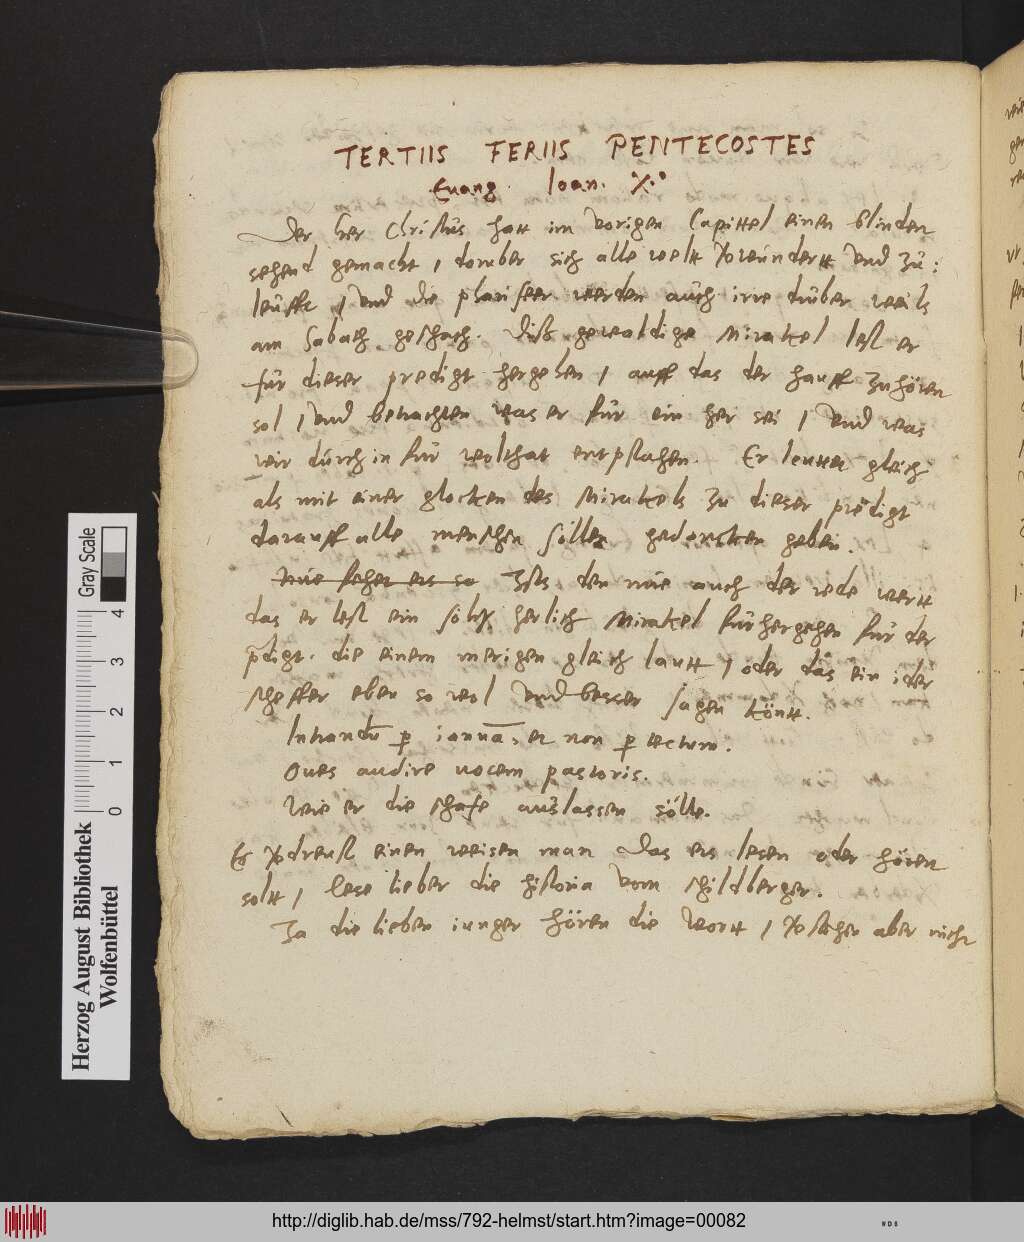 TERTIIS FERIIS PENTECOSTES
Euang. Ioan. X.
Der her Christus hatt im vorigen Capittel einen blinden
sehend gemacht, doruber sich alle welt verwundertt vnd zu:
leufft, vnd die phariseer werden auch irre druber weils
am Sabath geschach. Diß gewaldige Mirakel leßt er
für dieser predigt hergehen, auff das der hauff zuhören
sol, vnd betrachten was er für ein her sei, vnd was
wir durch in für wolthat entpfahen. Er leuttet gleich
als mit einer glocken des Mirakels zu dieser predigt
darauff alle menschen söllen gedancken geben.
Ists den nue auch der rede wertt
das er leßt ein solch herlich Mirakel fürhergehen für der
pdigt. die einem nerigen gleich lautt, oder das ein ider
scheffer eben so wol vnd besser sagen köntt.
Intrandũ p ianuã, et non p tectum.
Oues audire uocem pastoris.
Wie er die schafe auslassen sölle.
Es vdreußt einen weisen man das ers lesen oder hören
soltt, lese lieber die historia vom schildberger.
Ja die lieben iunger hören die wortt, vstehen aber nicht
Gray Scale
0 1 2 3 4
Herzog August Bibliothek
Wolfenbüttel
http://diglib.hab.de/mss/792-helmst/start.htm?image=00082